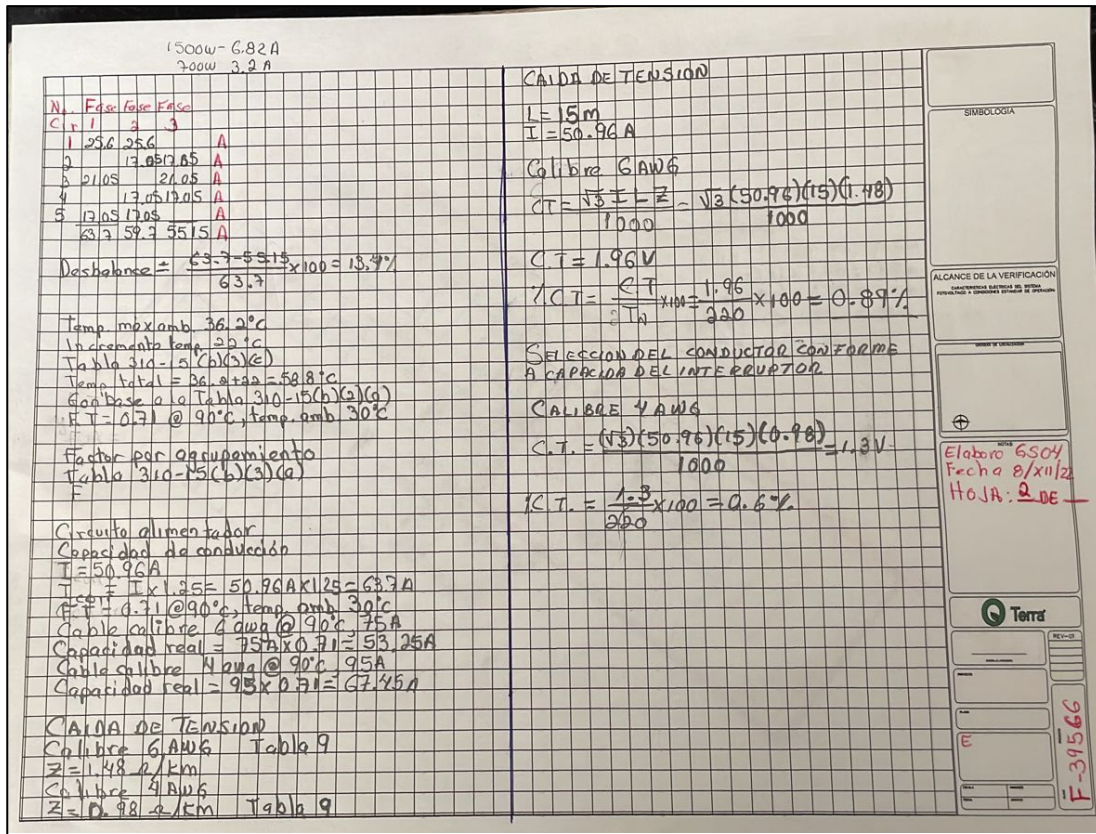 1500w - 6.82A
700w 3.2A
No. Fase Fase Fase
Cir 1 2 3
1 25.6 25.6 A
2 17.05 17.05 A
3 21.05 21.05 A
4 17.05 17.05 A
5 17.05 17.05 A
63.7 59.7 55.15 A
Desbalance = 63.7-55.15/63.7 x100 = 13.4%
Temp. max amb. 36.2°C
Incremento temp. 22°C
Tabla 310-15 (b)(3)(c)
Temp total = 36.2+22 = 58.8°C
Con base a la Tabla 310-15(b)(2)(a)
F.T = 0.71 @ 90°C, temp. amb 30°C
Factor por agrupamiento
Tabla 310-15(b)(3)(a)
F
Circuito alimentador
Capacidad de conducción
I = 50.96A
Icorr = I x 1.25 = 50.96A x 1.25 = 63.7A
F.T = 0.71 @ 90°C, temp. amb. 30°C
Cable calibre 6 awg @ 90°C, 75A
Capacidad real = 75A x 0.71 = 53.25A
Cable calibre 4 awg @ 90°C 95A
Capacidad real = 95 x 0.71 = 67.45A
CAIDA DE TENSION
Calibre 6 AWG Tabla 9
Z = 1.48 Ω/km
Calibre 4 AWG
Z = 0.98 Ω/km Tabla 9
CAIDA DE TENSION
L = 15m
I = 50.96 A
Calibre 6 AWG
CT = √3 I L Z/1000 = √3 (50.96)(15)(1.48)/1000
C.T = 1.96V
%C.T = C.T/ x100 = 1.96/220 x 100 = 0.89%
SELECCION DEL CONDUCTOR CONFORME
A CAPACIDA DEL INTERRUPTOR
CALIBRE 4 AWG
C.T. = (√3)(50.96)(15)(0.98)/1000 = 1.3V
%C.T. = 1.3/220 x100 = 0.6%
SIMBOLOGIA
ALCANCE DE LA VERIFICACIÓN
CARACTERISTICAS ELECTRICAS DEL SISTEMA
FOTOVOLTAICO A CONDICIONES ESTANDAR DE OPERACIÓN
NOTAS
Elaboro GS04
Fecha 8/XII/2
HOJA: 2 DE
Terra
REV-01
E
F-39566